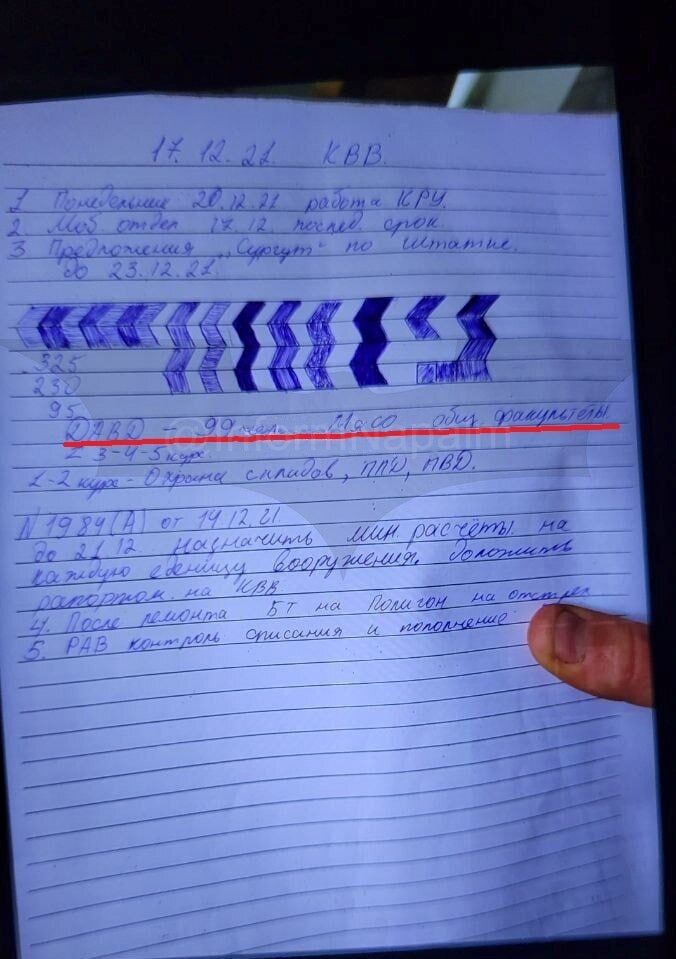 17. 12. 21. КВВ.
1 Понедельник 20.12.21 работа КРУ.
2. Моб. отдел 17.12. послед. срок.
3. Предложения „Сургут“ по штатке.
до 23.12.21.
325
230
95
- 99 чел. - Мясо общ факультеты
3-4-5 курс
1-2 курс - Охрана складов, ППД, ПВД.
@InformNapalm
N 1984(А) от 14.12.21
до 21.12. назначить мин. расчёты на
каждую еденицу вооружения. Доложить
рапортом на КВВ.
4. После ремонта БТ на Полигон на отстрел
5. РАВ контроль списания и пополнение